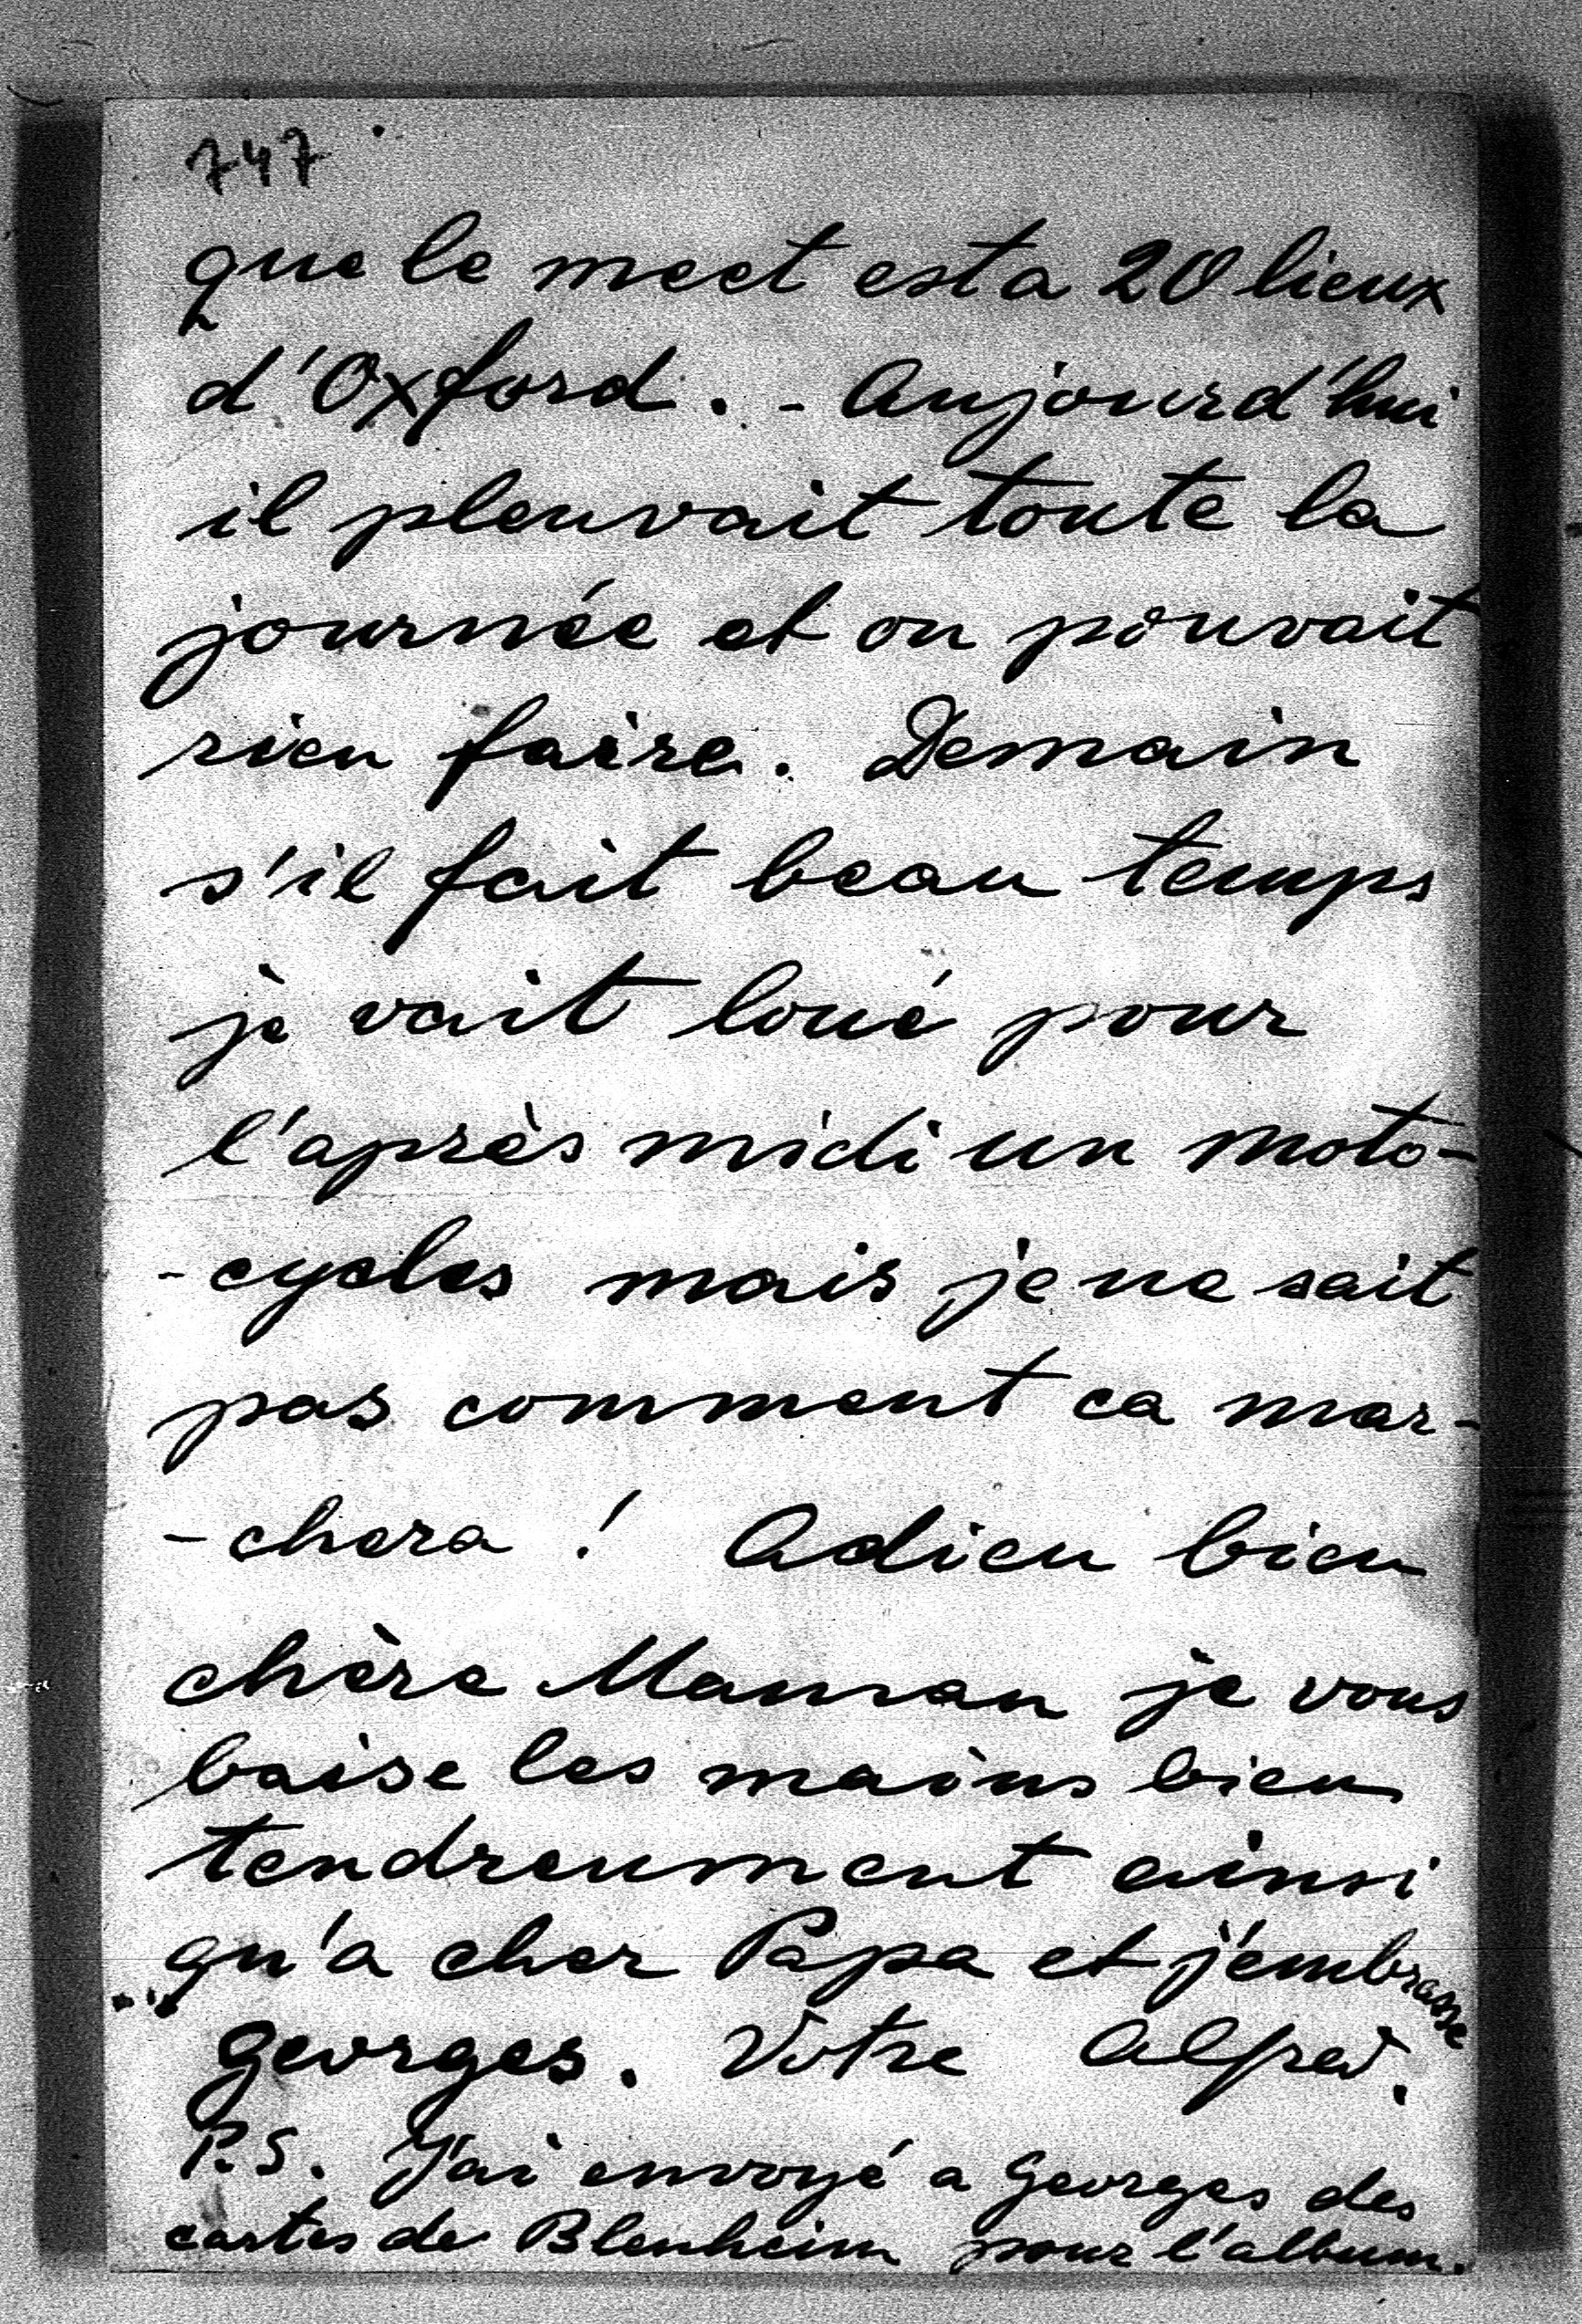 747
que le meet est a 20 lieux
d'Oxford. - Aujourd'hui
il pleuvait toute la
journée et on pouvait
rien faire. Demain
s'il fait beau temps
je vait loué pour
l'après midi un moto-
-cycles mais je ne sait
pas comment ca mar-
-chera ! Adieu bien
chère Maman je vous
baise les mains bien
tendreument ainsi
qu'a cher Papa et j'embrasse
Georges. Votre Alfred.
P.S. J'ai envoyé a Georges des
cartes de Blenheim pour l'album.